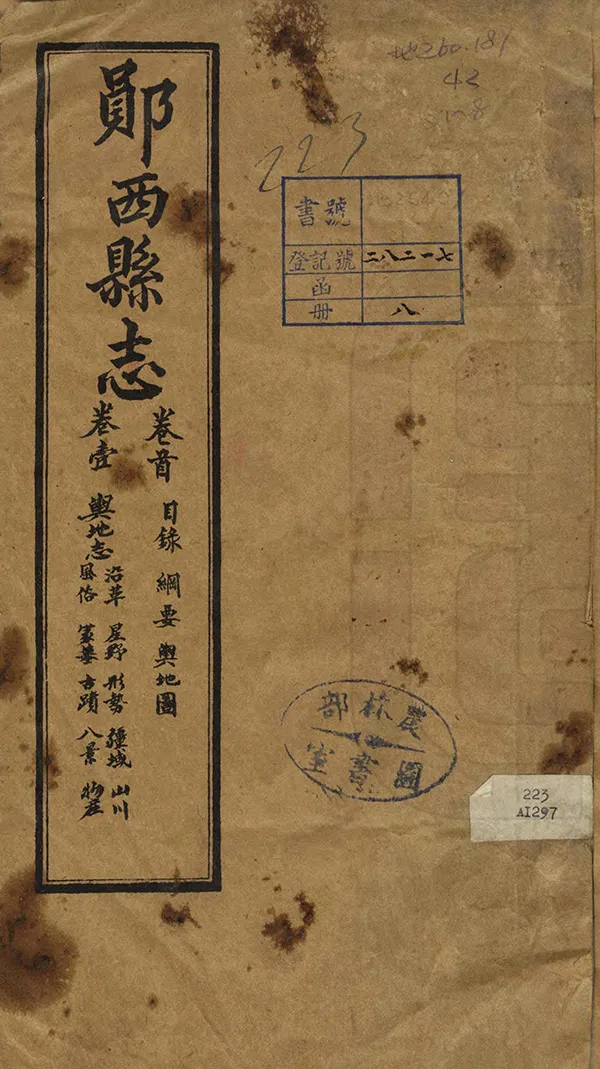 鄖西縣志
卷首 目錄 綱要 輿地圖
卷壹 輿地志
沿革 星野 形勢 疆域 山川
風俗 冢墓 古蹟 八景 物產
地260.181
42
223
書號
登記號 二八二一七
函
册 八
農林部
圖書室
223
AI297